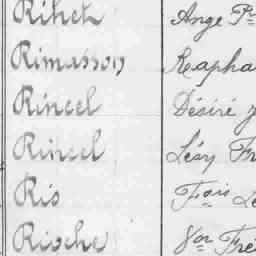 Rihet Ange Pre
Rimasson Rapha
Rincel Désiré
Rincel Léon Fr
Ris Fois Lo
Rioche Vor Fré